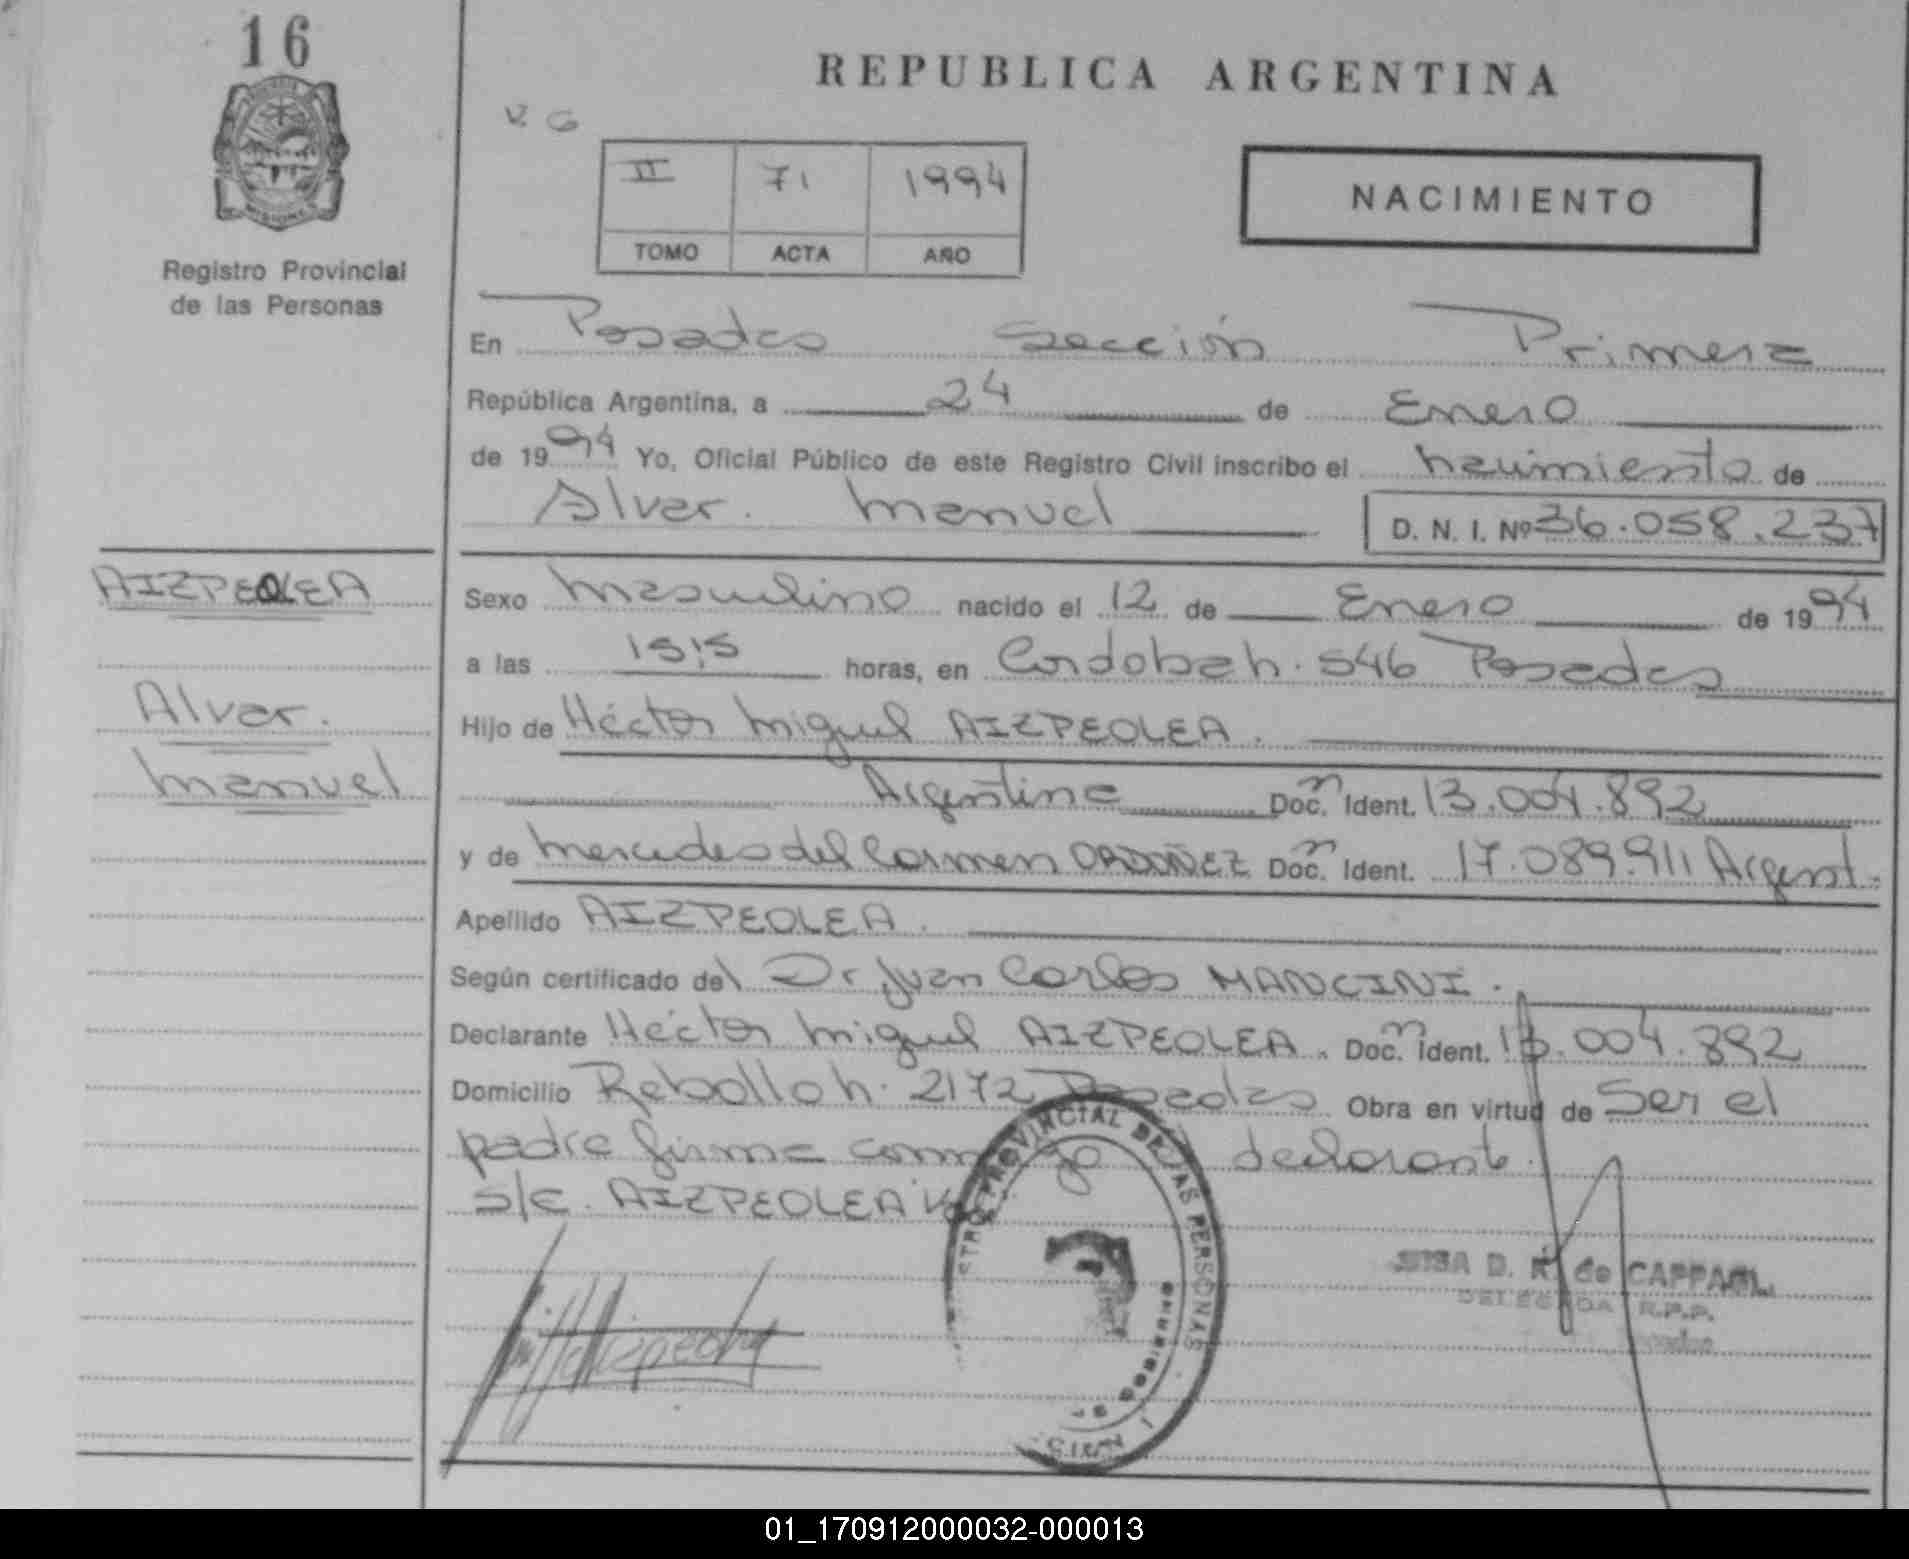 16
REPUBLICA ARGENTINA
II 71 1994
TOMO ACTA AÑO
NACIMIENTO
Registro Provincial
de las Personas
En Posadas Sección Primera
República Argentina, a 24 de Enero
de 1994 Yo, Oficial Público de este Registro Civil inscribo el nacimiento de
Alvar. Manuel D. N. I. Nº 36.058.237
AIZPEOLEA
Alvar.
Manuel
Sexo Masculino nacido el 12 de Enero de 1994
a las 15;5 horas, en Cordoba n. 546 Posadas
Hijo de Héctor Miguel AIZPEOLEA.
Argentina Doc. n Ident. 13.004.892
y de Mercedes del Carmen ORDOÑEZ Doc. n Ident. 17.089.911 Argent.
Apellido AIZPEOLEA.
Según certificado del Dr. Juan Carlos MANCINI.
Declarante Héctor Miguel AIZPEOLEA. Doc. n Ident. 13.004.892
Domicilio Rebollo n. 2172 Posadas Obra en virtud de Ser el
padre firma conmigo declarante.
s/c. AIZPEOLEA
PROVINCIAL DE LAS PERSONAS
D. R. de CAPPA
DELEGADA R.P.P.
01_170912000032-000013